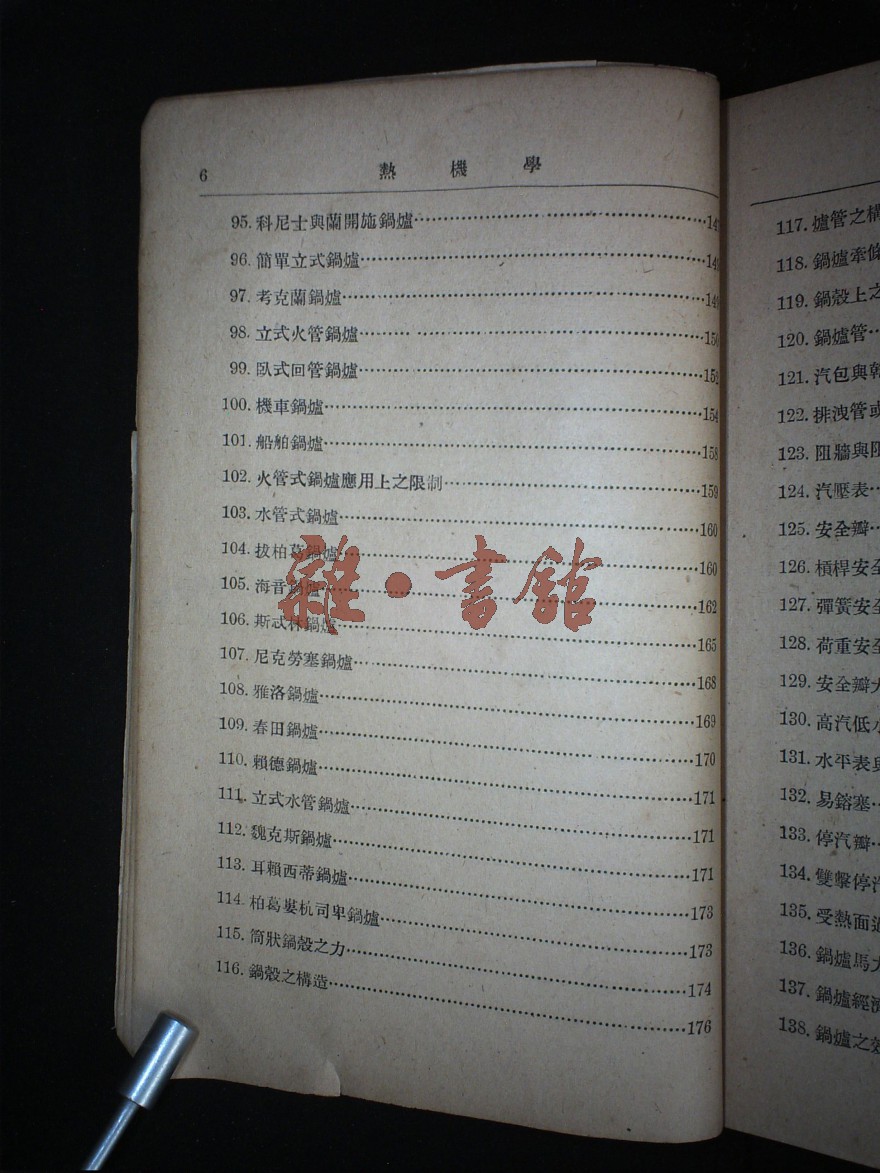 6
熱機學
95. 科尼士與蘭開施鍋爐
96. 簡單立式鍋爐
97. 考克蘭鍋爐
98. 立式火管鍋爐 150
99. 臥式回管鍋爐 152
100. 機車鍋爐 154
101. 船舶鍋爐 158
102. 火管式鍋爐應用上之限制 159
103. 水管式鍋爐 160
104. 拔柏葛鍋爐 160
105. 海音鍋爐 162
106. 斯忒林鍋爐 165
107. 尼克勞塞鍋爐 168
108. 雅洛鍋爐 169
109. 春田鍋爐 170
110. 賴德鍋爐 171
111. 立式水管鍋爐 171
112. 魏克斯鍋爐 171
113. 耳賴西蒂鍋爐 173
114. 柏葛婁杭司卑鍋爐 173
115. 筒狀鍋殼之力 174
116. 鍋殼之構造 176
雜·書館
117. 爐管之構
118. 鍋爐牽條
119. 鍋殼上之
120. 鍋爐管
121. 汽包與乾
122. 排洩管或
123. 阻牆與阻
124. 汽壓表
125. 安全瓣
126. 槓桿安全
127. 彈簧安全
128. 荷重安全
129. 安全瓣大
130. 高汽低水
131. 水平表與
132. 易鎔塞
133. 停汽瓣
134. 雙擊停汽
135. 受熱面
136. 鍋爐馬力
137. 鍋爐經濟
138. 鍋爐之效